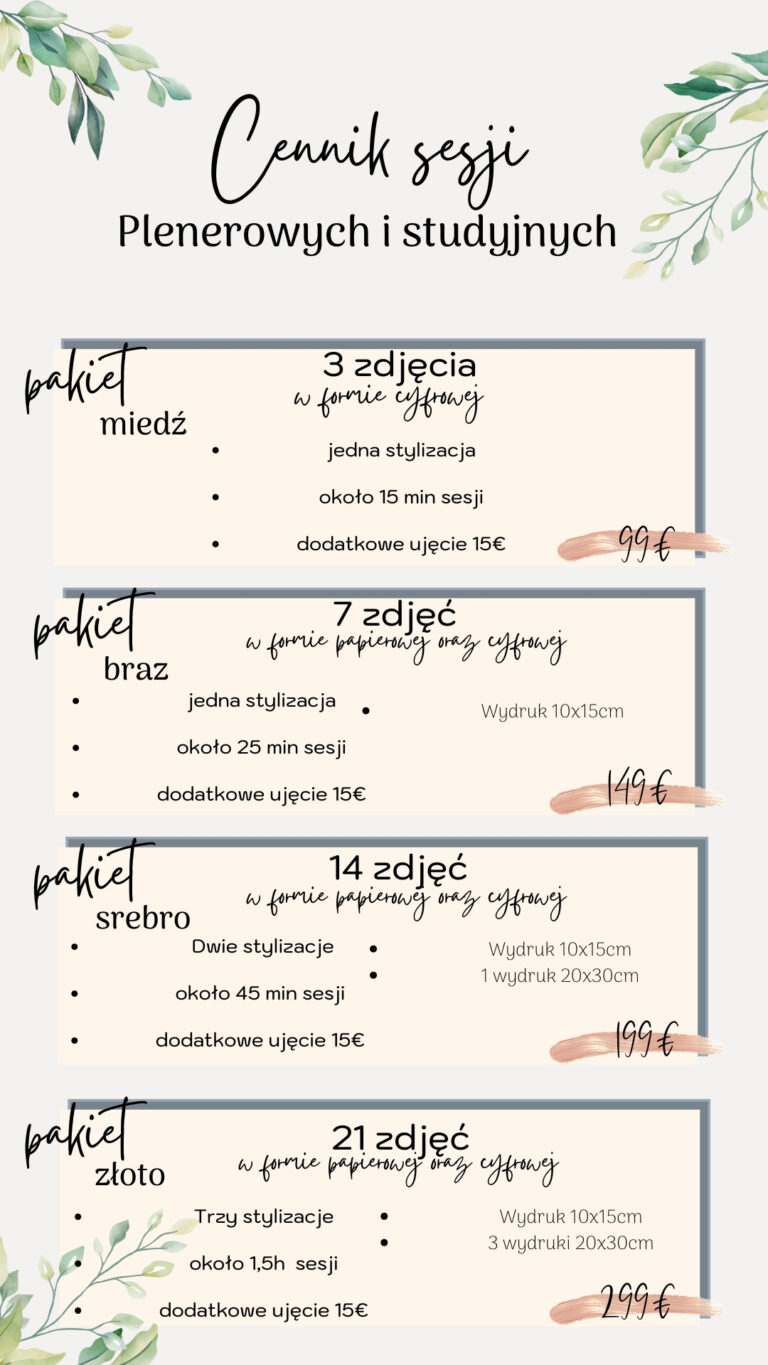 Cennik sesji
Plenerowych i studyjnych
pakiet
miedź
3 zdjęcia
w formie cyfrowej
• jedna stylizacja
• około 15 min sesji
• dodatkowe ujęcie 15€
99€
pakiet
braz
7 zdjęć
w formie papierowej oraz cyfrowej
• jedna stylizacja
• około 25 min sesji
• dodatkowe ujęcie 15€
• Wydruk 10x15cm
149€
pakiet
srebro
14 zdjęć
w formie papierowej oraz cyfrowej
• Dwie stylizacje
• około 45 min sesji
• dodatkowe ujęcie 15€
• Wydruk 10x15cm
• 1 wydruk 20x30cm
199€
pakiet
złoto
21 zdjęć
w formie papierowej oraz cyfrowej
• Trzy stylizacje
• około 1,5h sesji
• dodatkowe ujęcie 15€
• Wydruk 10x15cm
• 3 wydruki 20x30cm
299€